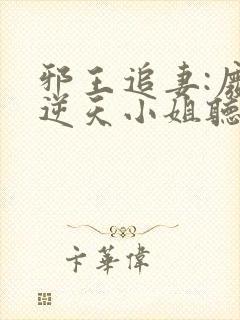 邪王追妻:廢
逆天小姐聽
卡華偉